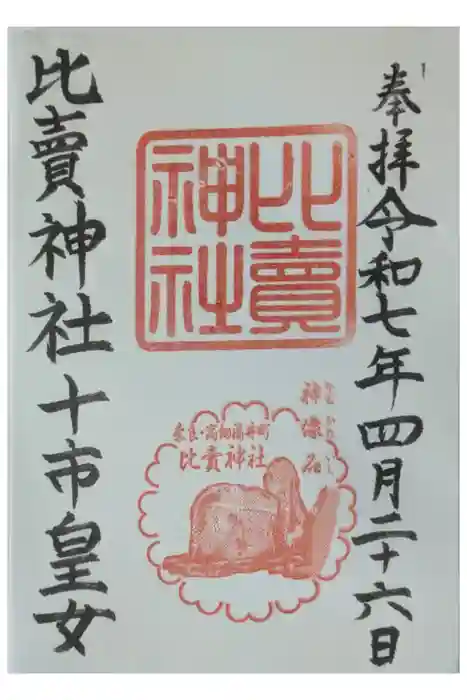 奉拝令和七年四月二十六日
比賣
神社
神像石
奈良・高畑福井町
比賣神社
比賣神社十市皇女